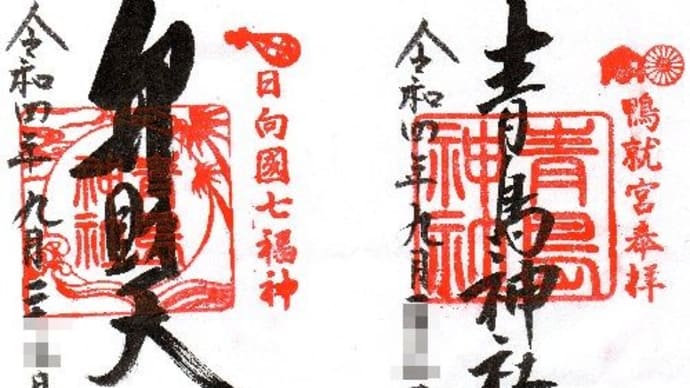 鴨就宮奉拝
青島神社
青島
神社
令和四年九月
日向國七福神
弁財天
青島
神社
令和四年九月